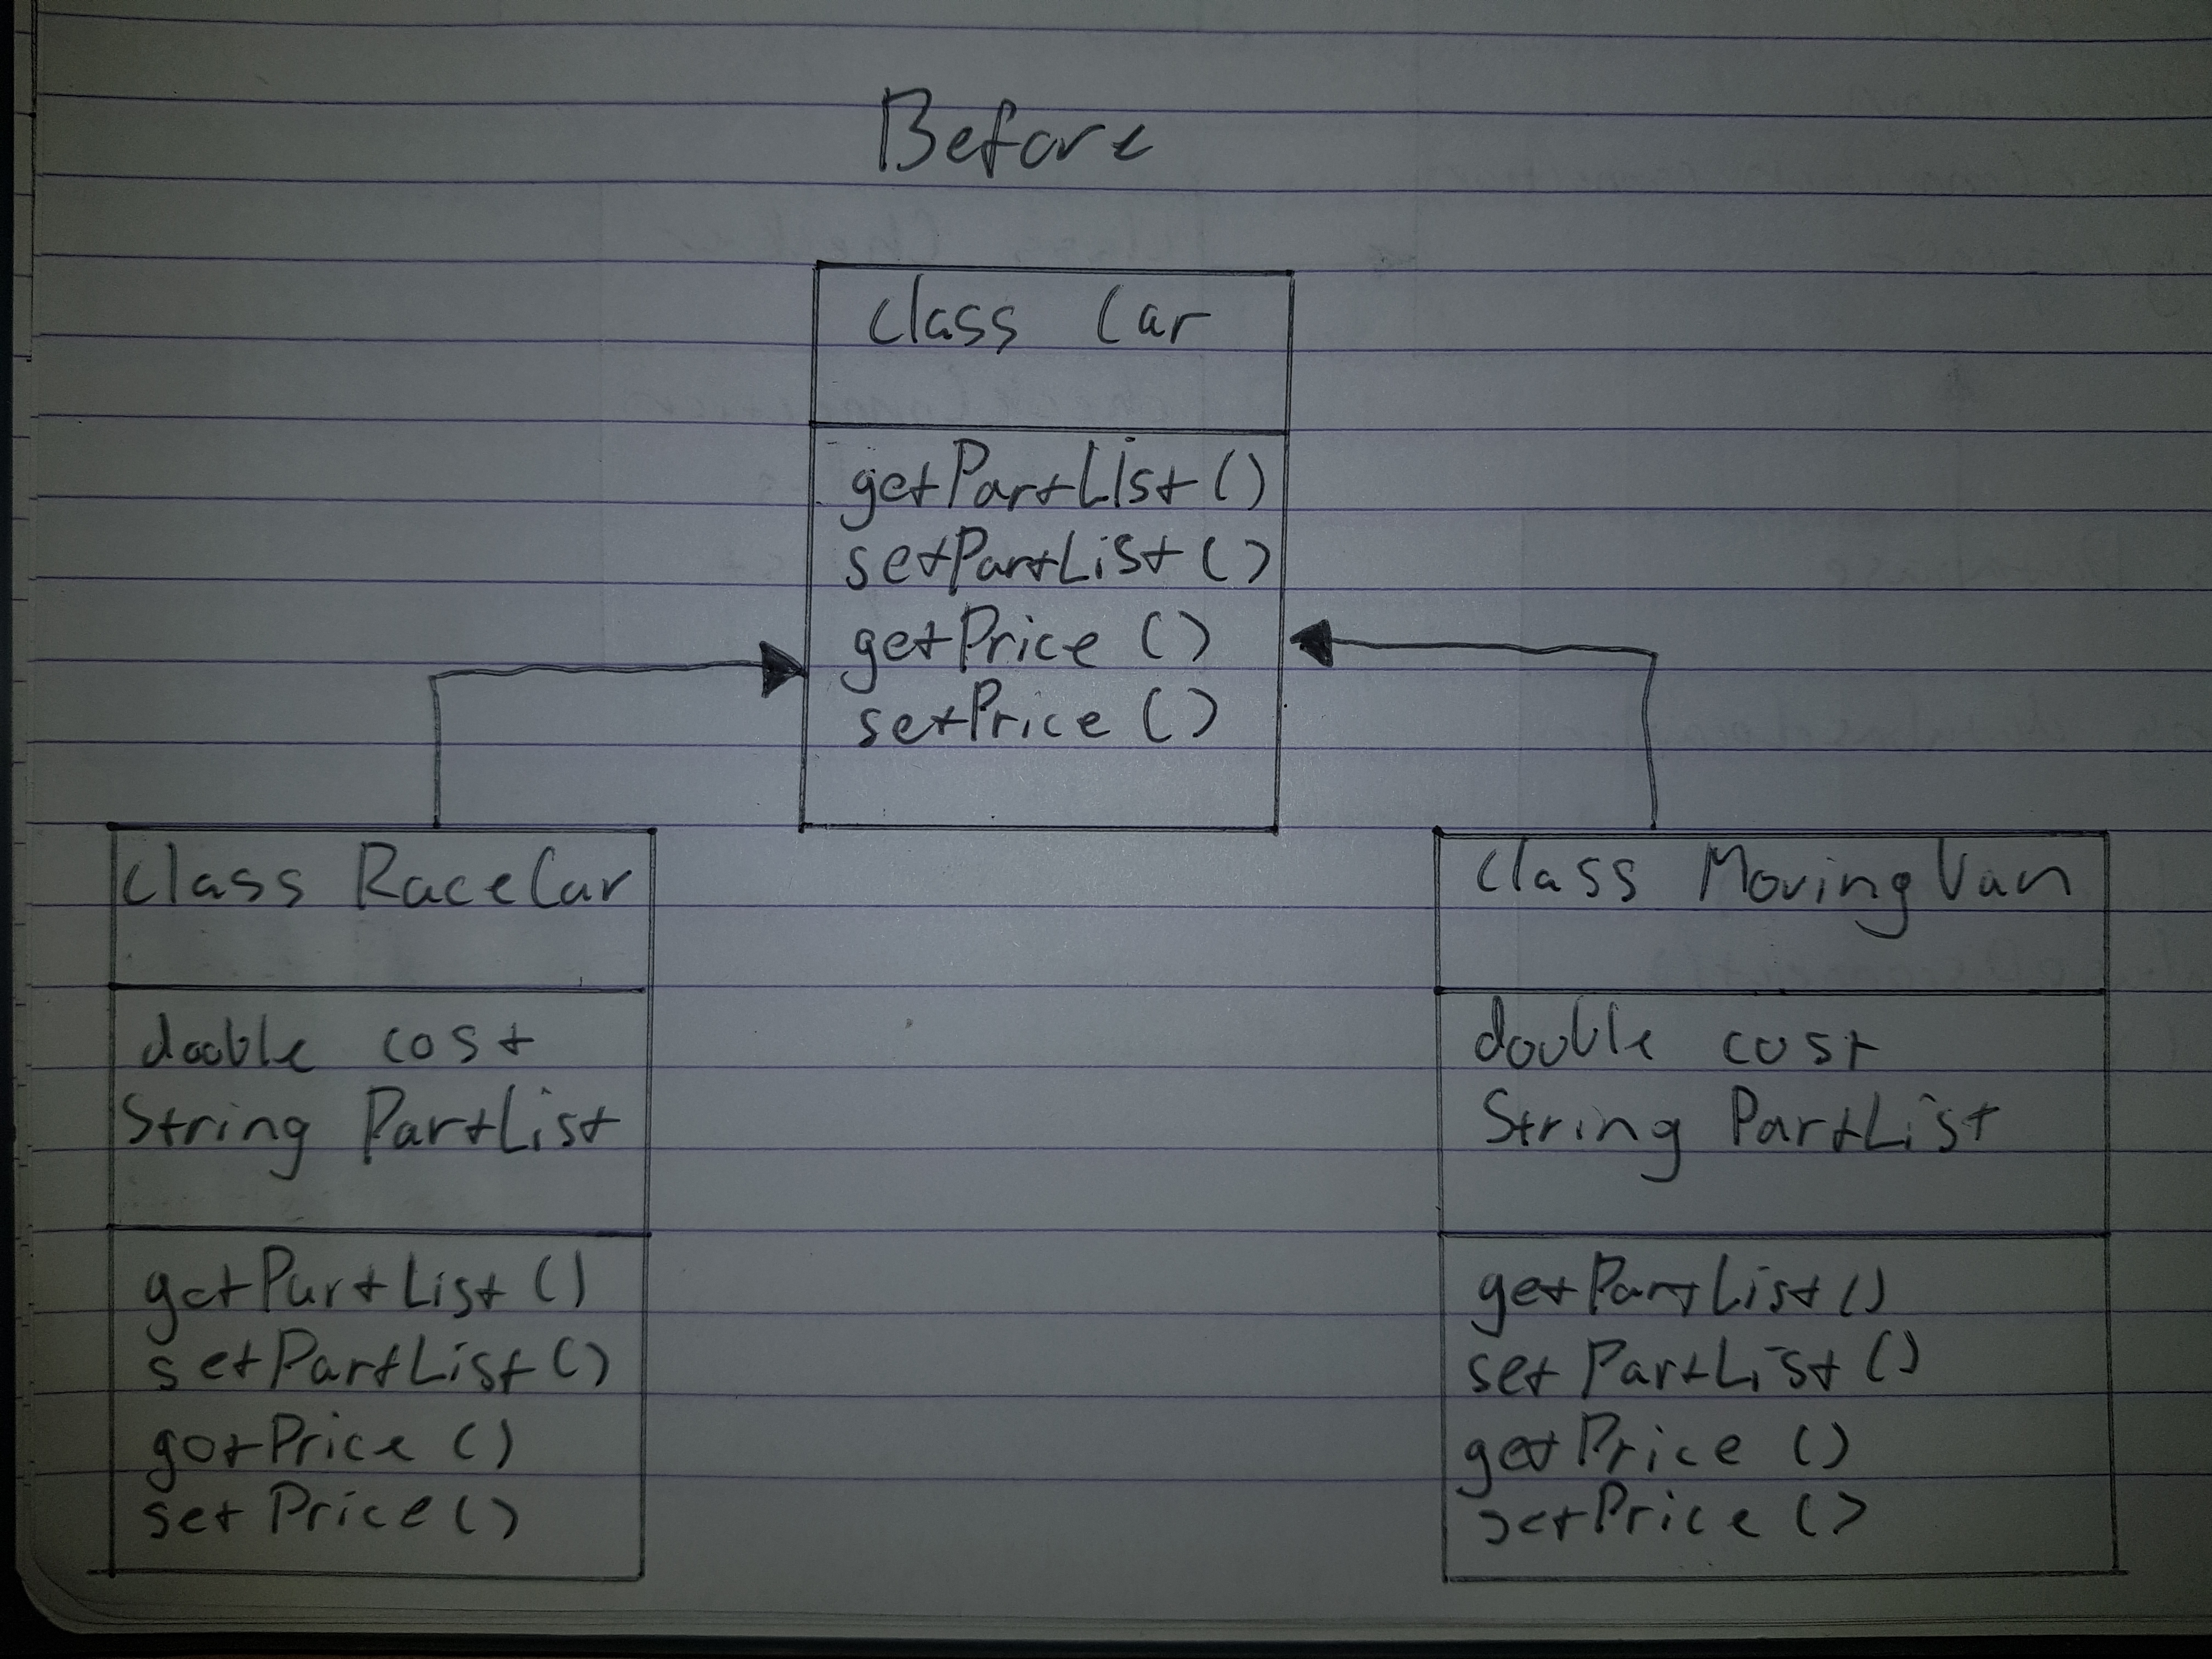 Before
class Car
getPartList()
setPartList()
getPrice ()
setPrice ()
class RaceCar
double cost
String PartList
getPartList()
setPartList()
getPrice ()
setPrice()
class MovingVan
double cost
String PartList
getPartList()
setPartList()
getPrice ()
setPrice ()